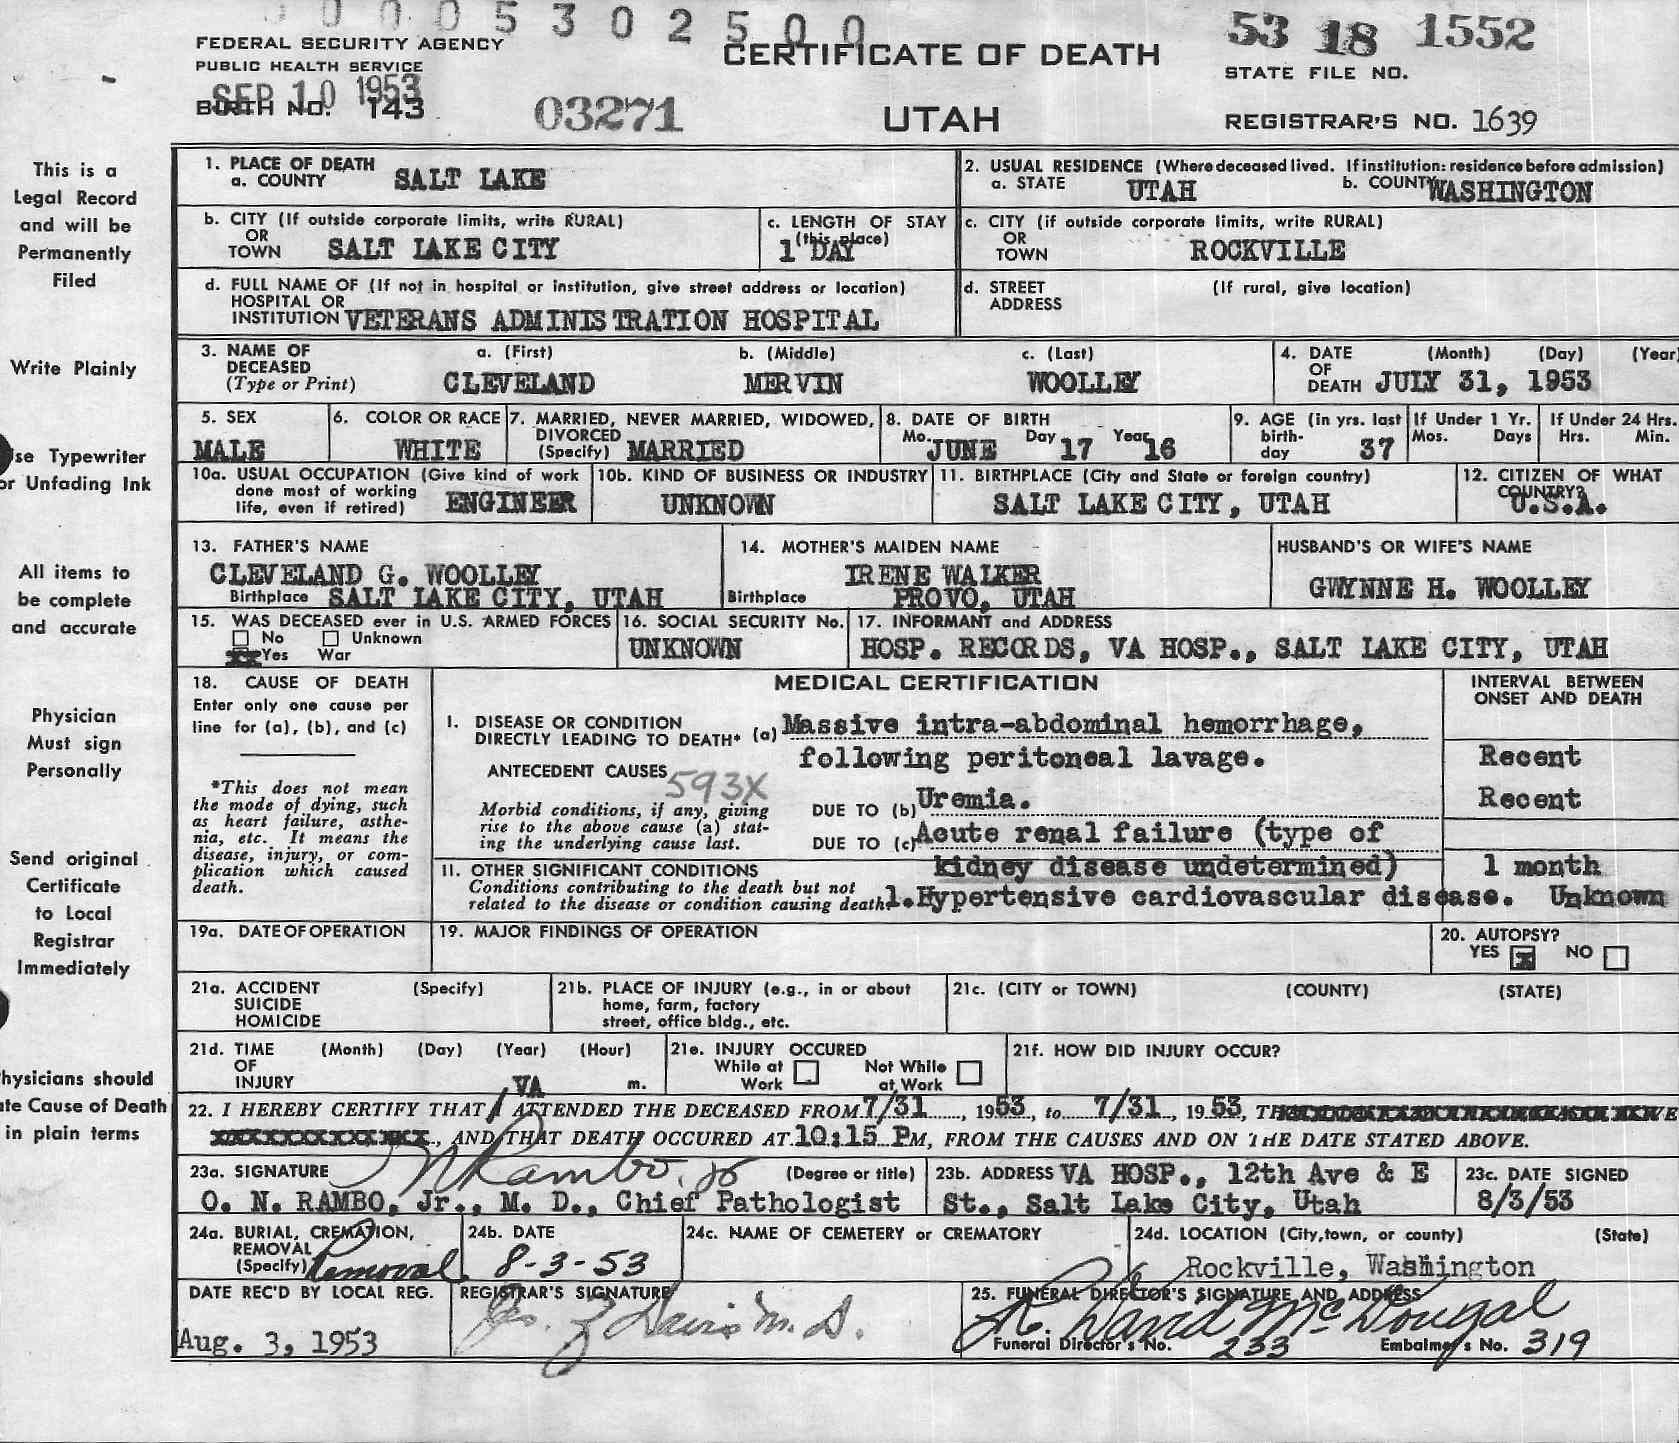 0 0 0 5 3 0 2 5 0 0
FEDERAL SECURITY AGENCY
PUBLIC HEALTH SERVICE
SEP 10 1953
BIRTH NO. 143
03271
CERTIFICATE OF DEATH
UTAH
53 18 1552
STATE FILE NO.
REGISTRAR'S NO. 1639
This is a
Legal Record
and will be
Permanently
Filed
Write Plainly
se Typewriter
or Unfading Ink
All items to
be complete
and accurate
Physician
Must sign
Personally
Send original
Certificate
to Local
Registrar
Immediately
hysicians should
te Cause of Death
in plain terms
1. PLACE OF DEATH
a. COUNTY SALT LAKE
2. USUAL RESIDENCE (Where deceased lived. If institution: residence before admission)
a. STATE UTAH b. COUNTY WASHINGTON
b. CITY (If outside corporate limits, write RURAL)
OR
TOWN SALT LAKE CITY
c. LENGTH OF STAY
(this place)
1 DAY
c. CITY (if outside corporate limits, write RURAL)
OR
TOWN ROCKVILLE
d. FULL NAME OF (If not in hospital or institution, give street address or location)
HOSPITAL OR
INSTITUTION VETERANS ADMINISTRATION HOSPITAL
d. STREET (If rural, give location)
ADDRESS
3. NAME OF
DECEASED
(Type or Print)
a. (First) b. (Middle) c. (Last)
CLEVELAND MERVIN WOOLLEY
4. DATE (Month) (Day) (Year)
OF
DEATH JULY 31, 1953
5. SEX
MALE
6. COLOR OR RACE
WHITE
7. MARRIED, NEVER MARRIED, WIDOWED,
DIVORCED
(Specify) MARRIED
8. DATE OF BIRTH
Mo. JUNE Day 17 Year 16
9. AGE (in yrs. last
birth-
day 37
If Under 1 Yr.
Mos. Days
If Under 24 Hrs.
Hrs. Min.
10a. USUAL OCCUPATION (Give kind of work
done most of working
life, even if retired) ENGINEER
10b. KIND OF BUSINESS OR INDUSTRY
UNKNOWN
11. BIRTHPLACE (City and State or foreign country)
SALT LAKE CITY, UTAH
12. CITIZEN OF WHAT
COUNTRY?
U.S.A.
13. FATHER'S NAME
CLEVELAND G. WOOLLEY
Birthplace SALT LAKE CITY, UTAH
14. MOTHER'S MAIDEN NAME
IRENE WALKER
Birthplace PROVO, UTAH
HUSBAND'S OR WIFE'S NAME
GWYNNE H. WOOLLEY
15. WAS DECEASED ever in U.S. ARMED FORCES
No Unknown
Yes War
16. SOCIAL SECURITY No.
UNKNOWN
17. INFORMANT and ADDRESS
HOSP. RECORDS, VA HOSP., SALT LAKE CITY, UTAH
18. CAUSE OF DEATH
Enter only one cause per
line for (a), (b), and (c)
*This does not mean
the mode of dying, such
as heart failure, asthe-
nia, etc. It means the
disease, injury, or com-
plication which caused
death.
MEDICAL CERTIFICATION
INTERVAL BETWEEN
ONSET AND DEATH
I. DISEASE OR CONDITION
DIRECTLY LEADING TO DEATH* (a) Massive intra-abdominal hemorrhage,
following peritoneal lavage. Recent
ANTECEDENT CAUSES 593X
Morbid conditions, if any, giving
rise to the above cause (a) stat-
ing the underlying cause last.
DUE TO (b) Uremia. Recent
DUE TO (c) Acute renal failure (type of
kidney disease undetermined) 1 month
11. OTHER SIGNIFICANT CONDITIONS
Conditions contributing to the death but not
related to the disease or condition causing death. 1. Hypertensive cardiovascular disease. Unknown
19a. DATE OF OPERATION
19. MAJOR FINDINGS OF OPERATION
20. AUTOPSY?
YES X NO
21a. ACCIDENT (Specify)
SUICIDE
HOMICIDE
21b. PLACE OF INJURY (e.g., in or about
home, farm, factory
street, office bldg., etc.
21c. (CITY or TOWN) (COUNTY) (STATE)
21d. TIME (Month) (Day) (Year) (Hour)
OF
INJURY m.
21e. INJURY OCCURED
While at Work Not While at Work
21f. HOW DID INJURY OCCUR?
VA
22. I HEREBY CERTIFY THAT I ATTENDED THE DECEASED FROM 7/31, 1953, to 7/31, 1953,
AND THAT DEATH OCCURED AT 10:15 PM, FROM THE CAUSES AND ON THE DATE STATED ABOVE.
23a. SIGNATURE N Rambo, Jr (Degree or title)
O. N. RAMBO, Jr., M. D., Chief Pathologist
23b. ADDRESS VA HOSP., 12th Ave & E
St., Salt Lake City, Utah
23c. DATE SIGNED
8/3/53
24a. BURIAL, CREMATION,
REMOVAL
(Specify) Removal
24b. DATE
8-3-53
24c. NAME OF CEMETERY OR CREMATORY
24d. LOCATION (City, town, or county) (State)
Rockville, Washington
DATE REC'D BY LOCAL REG.
Aug. 3, 1953
REGISTRAR'S SIGNATURE
Davis M. D.
25. FUNERAL DIRECTOR'S SIGNATURE AND ADDRESS
R. David McDougal
Funeral Director's No. 233 Embalmer's No. 319